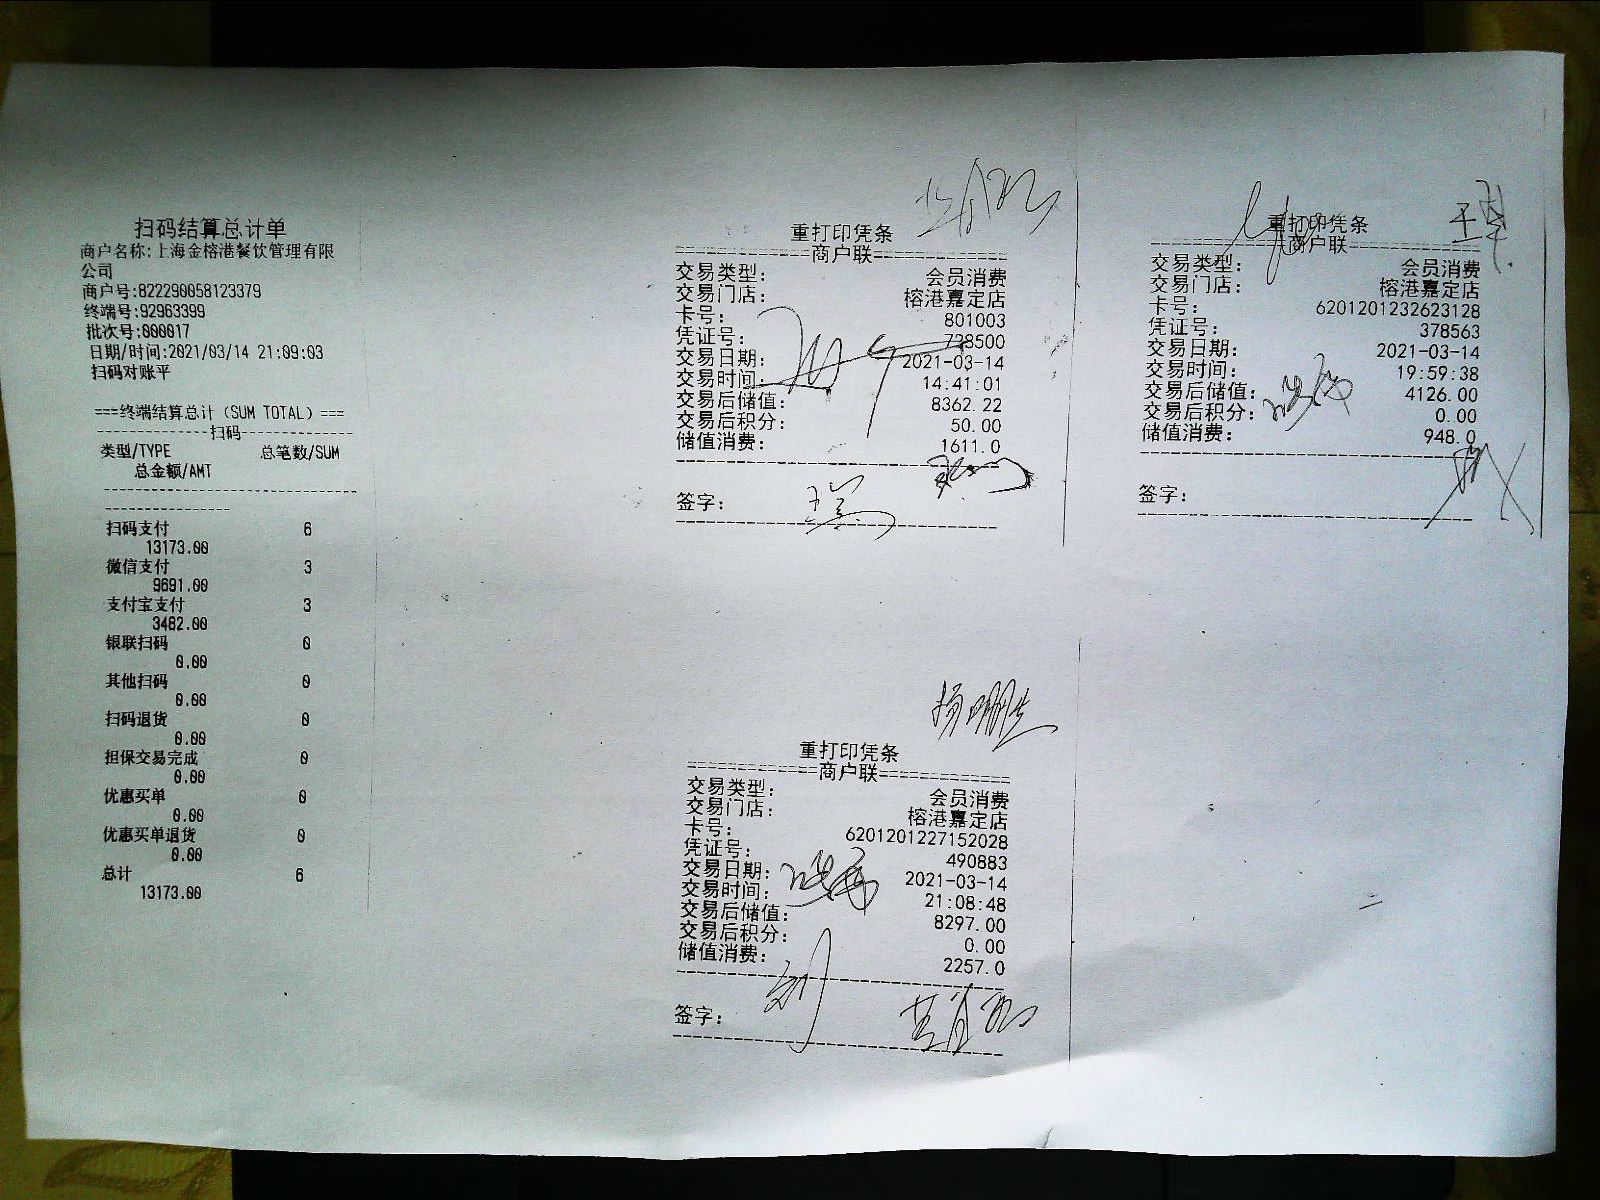 扫码结算总计单
商户名称:上海金榕港餐饮管理有限
公司
商户号:822290058123379
终端号:92963399
批次号:000017
日期/时间:2021/03/14 21:09:03
扫码对账平
===终端结算总计（SUM TOTAL）===
--------------扫码--------------
类型/TYPE 总笔数/SUM
总金额/AMT
扫码支付 6
13173.00
微信支付 3
9691.00
支付宝支付 3
3482.00
银联扫码 0
0.00
其他扫码 0
0.00
扫码退货 0
0.00
担保交易完成 0
0.00
优惠买单 0
0.00
优惠买单退货 0
0.00
总计 6
13173.00
重打印凭条
=============商户联=============
交易类型: 会员消费
交易门店: 榕港嘉定店
卡号: 801003
凭证号: 738500
交易日期: 2021-03-14
交易时间: 14:41:01
交易后储值: 8362.22
交易后积分: 50.00
储值消费: 1611.0
签字:
重打印凭条
=============商户联=============
交易类型: 会员消费
交易门店: 榕港嘉定店
卡号: 6201201232623128
凭证号: 378563
交易日期: 2021-03-14
交易时间: 19:59:38
交易后储值: 4126.00
交易后积分: 0.00
储值消费: 948.0
签字:
重打印凭条
=============商户联=============
交易类型: 会员消费
交易门店: 榕港嘉定店
卡号: 6201201227152028
凭证号: 490883
交易日期: 2021-03-14
交易时间: 21:08:48
交易后储值: 8297.00
交易后积分: 0.00
储值消费: 2257.0
签字: